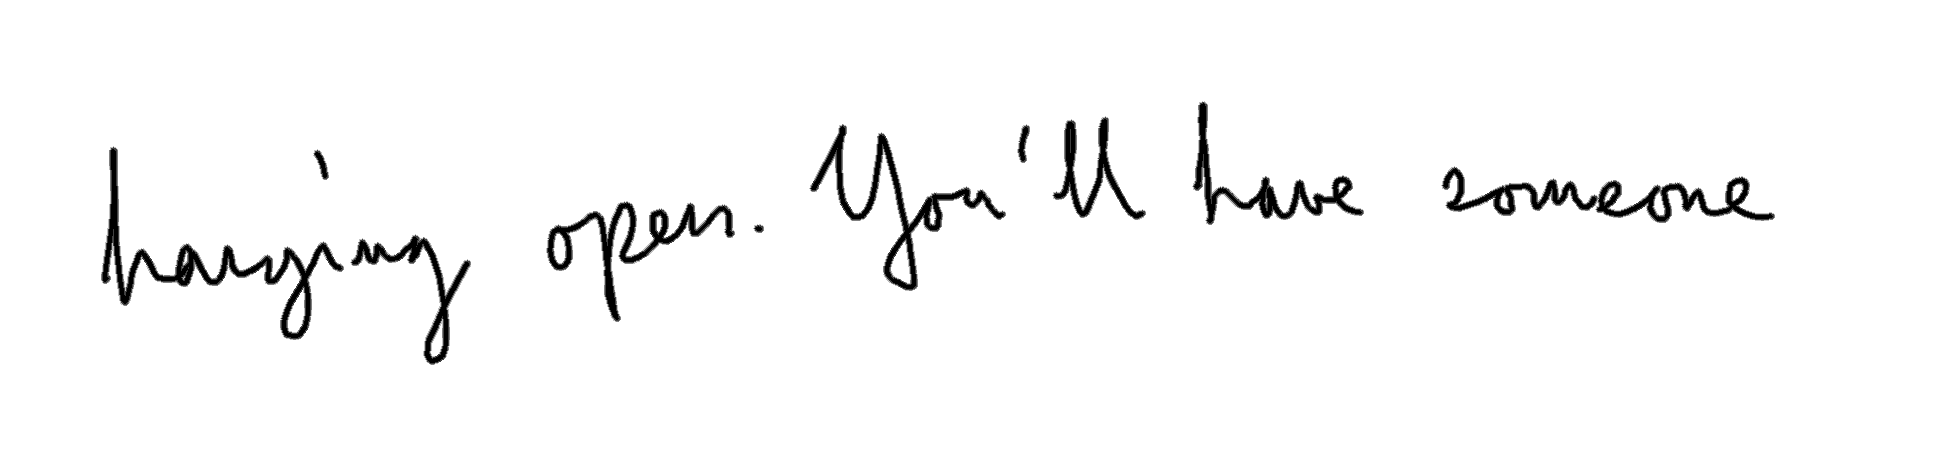 hanging open. You'll have someone